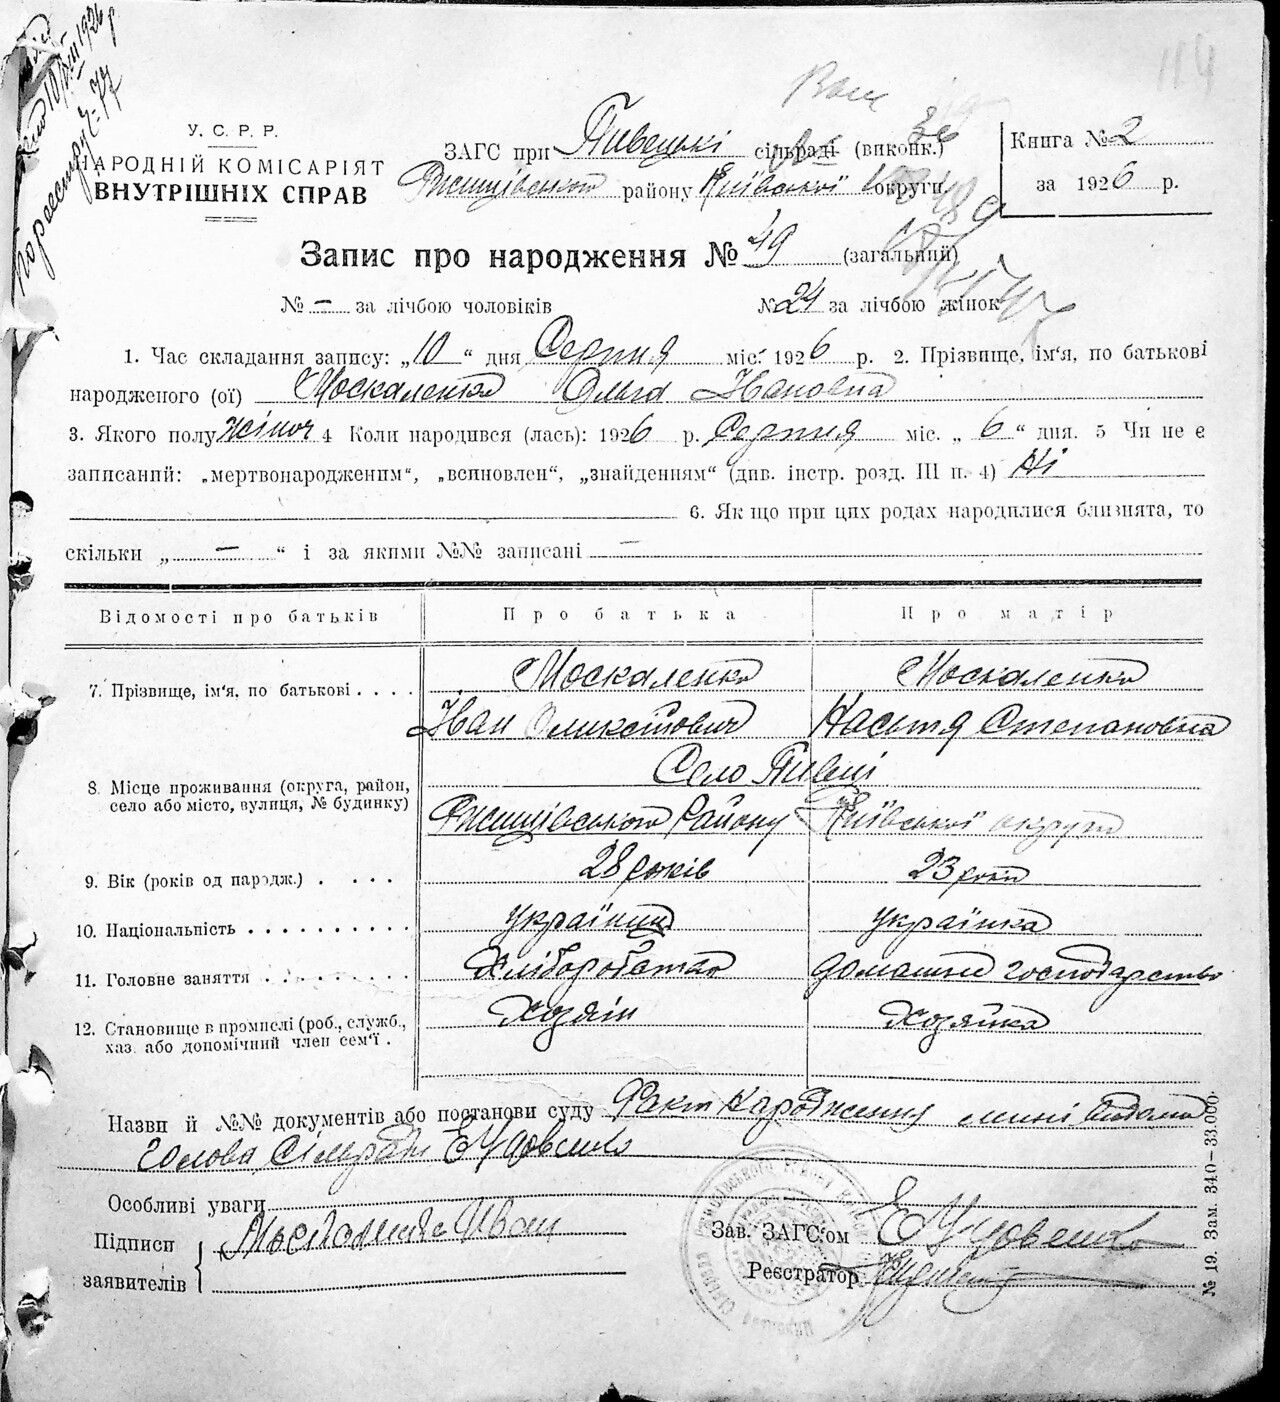 114
10/VIII 1926 р
по реестру
У. С. Р. Р.
НАРОДНІЙ КОМІСАРІЯТ
ВНУТРІШНІХ СПРАВ
ЗАГС при Пивецькі сільраді (виконк.)
Ржищівського району Київської округи
Книга № 2
за 1926 р.
Запис про народження № 49 (загальний)
№ — за лічбою чоловіків № 24 за лічбою жінок
1. Час складання запису: „10“ дня Серпня міс. 1926 р. 2. Прізвище, ім‘я, по батькові
народженого (ої) Москаленко Ольга Івановна
3. Якого полу жіноч 4 Коли народився (лась): 1926 р. Серпня міс. „6“ дня. 5 Чи не є
записаний: „мертвонародженим“, „всиновлен“, „знайденням“ (див. інстр. розд. III п. 4) Ні
6. Якщо при цих родах народилися близнята, то
скільки „ — “ і за якими №№ записані —
Відомості про батьків Про батька Про матір
7. Прізвище, ім‘я, по батькові . . . . Москаленко Москаленко
Іван Настя Степановна
Село Пивці
8. Місце проживання (округа, район,
село або місто, вулиця, № будинку)
Ржищівського Району Київської округи
9. Вік (років од народж.) . . . . 28 років 23 роки
10. Національність . . . . . . . . . . українец українка
11. Головне заняття . . . . . . . . Хліборобство домашнє господарство
12. Становище в промислі (роб., служб., Хозяїн Хозяйка
хаз. або допомічний член сем‘ї .
Назви й №№ документів або постанови суду Факт народження мині відомо
Голова Сілради Є Удовенко
Особливі уваги
Підписи
заявителів
Москаленко Иван
Зав. ЗАГС‘ом Є Удовенко
Реєстратор
№ 19. Зам. 340—33.000.